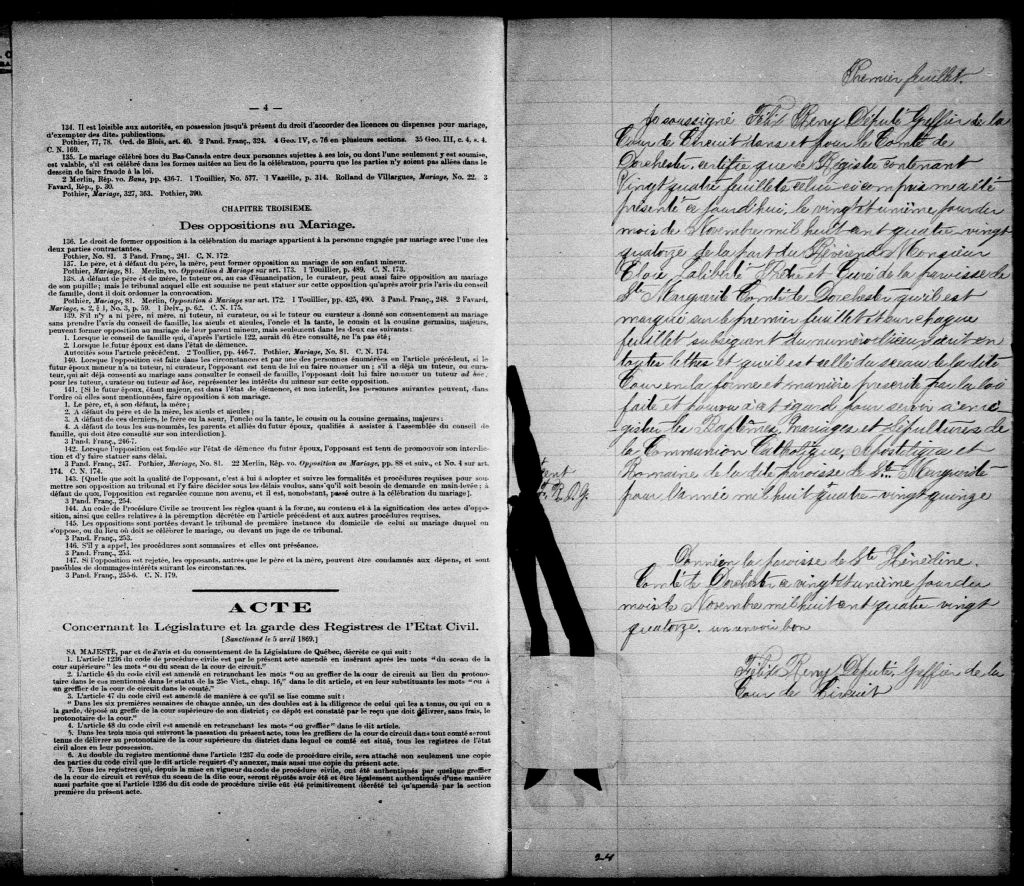 — 4 —
134. Il est loisible aux autorités, en possession jusqu'à présent du droit d'accorder des licences ou dispenses pour mariage,
d'exempter des dites publications.
Pothier, 77, 78. Ord. de Blois, art. 40. 2 Pand. Franç., 324. 4 Geo. IV, c. 76 en plusieurs sections. 35 Geo. III, c. 4, s. 4.
C. N. 169.
135. Le mariage célébré hors du Bas-Canada entre deux personnes sujettes à ses lois, ou dont l'une seulement y est soumise,
est valable, s'il est célébré dans les formes usitées au lieu de la célébration, pourvu que les parties n'y soient pas allées dans le
dessein de faire fraude à la loi.
2 Merlin, Rép. vo. Bans, pp. 436-7. 1 Toullier, No. 577. 1 Vazeille, p. 314. Rolland de Villargues, Mariage, No. 22. 3
Favard, Rép., p. 30.
Pothier, Mariage, 327, 363. Pothier, 390.
CHAPITRE TROISIEME.
Des oppositions au Mariage.
136. Le droit de former opposition à la célébration du mariage appartient à la personne engagée par mariage avec l'une des
deux parties contractantes.
Pothier, No. 81. 3 Pand. Franç., 241. C. N. 172.
137. Le père, et à défaut du père, la mère, peut former opposition au mariage de son enfant mineur.
Pothier, Mariage, 81. Merlin, vo. Opposition à Mariage sur art. 173. 1 Touillier, p. 489. C. N. 173.
138. A défaut de père et de mère, le tuteur, et dans le cas d'émancipation, le curateur, peut aussi faire opposition au mariage
de son pupille; mais le tribunal auquel elle est soumise ne peut statuer sur cette opposition qu'après avoir pris l'avis du conseil
de famille, dont il doit ordonner la convocation.
Pothier, Mariage, 81. Merlin, Opposition à Mariage sur art. 172. 1 Touillier, pp. 425, 490. 3 Pand. Franç., 248. 2 Favard,
Mariage, s. 2, § 1, No. 3, p. 59. 1 Delv., p. 62. C. N. 175.
139. S'il n'y a ni père, ni mère, ni tuteur, ni curateur, ou si le tuteur ou curateur a donné son consentement au mariage
sans prendre l'avis du conseil de famille, les aïeuls et aïeules, l'oncle et la tante, le cousin et la cousine germains, majeurs,
peuvent former opposition au mariage de leur parent mineur, mais seulement dans les deux cas suivants:
1. Lorsque le conseil de famille qui, d'après l'article 122, aurait dû être consulté, ne l'a pas été;
2. Lorsque le futur époux est dans l'état de démence.
Autorités sous l'article précédent. 2 Toullier, pp. 446-7. Pothier, Mariage, No. 81. C. N. 174.
140. Lorsque l'opposition est faite dans les circonstances et par une des personnes énumérées en l'article précédent, si le
futur époux mineur n'a ni tuteur, ni curateur, l'opposant est tenu de lui en faire nommer un; s'il a déjà un tuteur, ou cura-
teur, qui ait déjà consenti au mariage sans consulter le conseil de famille, l'opposant doit lui faire nommer un tuteur ad hoc,
pour les tuteur, curateur ou tuteur ad hoc, représenter les intérêts du mineur sur cette opposition.
141. [Si le futur époux, étant majeur, est dans l'état de démence, et non interdit, les personnes suivantes peuvent, dans
l'ordre où elles sont mentionnées, faire opposition à son mariage.
1. Le père, et, à son défaut, la mère;
2. A défaut du père et de la mère, les aïeuls et aïeules;
3. A défaut de ces derniers, le frère ou la sœur, l'oncle ou la tante, le cousin ou la cousine germains, majeurs;
4. A défaut de tous les sus-nommés, les parents et alliés du futur époux, qualifiés à assister à l'assemblée du conseil de
famille, qui doit être consultée sur son interdiction].
3 Pand. Franç., 246-7.
142. Lorsque l'opposition est fondée sur l'état de démence du futur époux, l'opposant est tenu de promouvoir son interdic-
tion et d'y faire statuer sans délai.
3 Pand. Franç., 247. Pothier, Mariage, No. 81. 22 Merlin, Rép. vo. Opposition au Mariage, pp 88 et suiv., et No. 4 sur art.
174. C. N. 174.
143. [Quelle que soit la qualité de l'opposant, c'est à lui à adopter et suivre les formalités et procédures requises pour sou-
mettre son opposition au tribunal et l'y faire décider sous les délais voulus, sans qu'il soit besoin de demande en main-levée; à
défaut de quoi, l'opposition est regardée comme non avenu, et il est, nonobstant, passé outre à la célébration du mariage].
3 Pand. Franç., 254.
144. Au code de Procédure Civile se trouvent les règles quant à la forme, au contenu et à la signification des actes d'oppo-
sition, ainsi que celles relatives à la péremption décrétée en l'article précédent et aux autres procédures requises.
145. Les oppositions sont portées devant le tribunal de première instance du domicile de celui au mariage duquel on
s'oppose, ou du lieu où doit se célébrer le mariage, ou devant un juge de ce tribunal.
3 Pand. Franç., 253.
146. S'il y a appel, les procédures sont sommaires et elles ont préséance.
3 Pand. Franç., 253.
147. Si l'opposition est rejetée, les opposants, autres que le père et la mère, peuvent être condamnés aux dépens, et sont
passibles de dommages-intérêts suivant les circonstances.
3 Pand. Franç., 255-6. C. N. 179.
ACTE
Concernant la Législature et la garde des Registres de l'Etat Civil.
[Sanctionné le 5 avril 1869.]
SA MAJESTÉ, par et de l'avis et du consentement de la Législature de Québec, décrète ce qui suit:
1. L'article 1236 du code de procédure civile est par le présent acte amendé en insérant après les mots "du sceau de la
cour supérieure" les mots "ou du sceau de la cour de circuit."
2. L'article 45 du code civil est amendé en retranchant les mots "ou au greffier de la cour de circuit au lieu du protono-
taire dans le cas mentionné dans le statut de la 25e Vict., chap. 16," dans le dit article, et en leur substituants les mots "ou à
au greffier de la cour de circuit dans le comté."
3. L'article 47 du code civil est amendé de manière à ce qu'il se lise comme suit:
"Dans les six premières semaines de chaque année, un des doubles est à la diligence de celui qui les a tenus, ou qui en a
la garde, déposé au greffe de la cour supérieure de son district; ce dépôt est constaté par le reçu que doit délivrer, sans frais, le
protonotaire de la cour."
4. L'article 48 du code civil est amendé en retranchant les mots "ou greffier" dans le dit article.
5. Dans les trois mois qui suivront la passation du présent acte, tous les greffiers de la cour de circuit dans tout comté seront
tenus de délivrer au protonotaire de la cour supérieure du district dans lequel ce comté est situé, tous les registres de l'état
civil alors en leur possession.
6. Au double du registre mentionné dans l'article 1237 du code de procédure civile, sera attaché non seulement une copie
des parties du code civil que le dit article requiert d'y annexer, mais aussi une copie du présent acte.
7. Tous les registres qui, depuis la mise en vigueur du code de procédure civile, ont été authentiqués par quelque greffier
de la cour de circuit et revêtus du sceau de la dite cour, seront réputés avoir été et être légalement authentiqués d'une manière
aussi parfaite que si l'article 1236 du dit code de procédure civile eût été primitivement décrété tel qu'amendé par la section
première du présent acte.
Premier feuillet.
Je soussigné Félix Remy Député Greffier de la
Cour de Circuit dans et pour le Comté de
Dorchester certifie que ce Régistre contenant
Vingt quatre feuillets celui ci compris m'a été
présenté ce jourd'hui, le vingt et unième jour du
mois de Novembre mil huit cent quatre-vingt
quatorze de la part du Révérend Monsieur
Eloïe Laliberté Prêtre et Curé de la paroisse de
Ste Marguerite Comté de Dorchester qu'il est
marqué sur le premier feuillet et sur chaque
feuillet subséquent du numéro d'iceux écrit en
toutes lettres et qu'il est scellé du sceau de la dite
Cour en la forme et manière prescrite par la loi
faite et pourvu à cet égard pour servir à enre-
gistrer les Baptêmes, mariages et sépultures de
la Communion Catholique, Apostolique et
Romaine de la dite paroisse de Ste Marguerite
pour l'année mil huit quatre-vingt quinze
R.O.G.
Donné en la paroisse de Ste Hénédine.
Comté de Dorchester ce vingt et unième jour du
mois de Novembre mil huit cent quatre vingt
quatorze. un renvoi bon
Félix Remy Député Greffier de la
Cour de Circuit
24